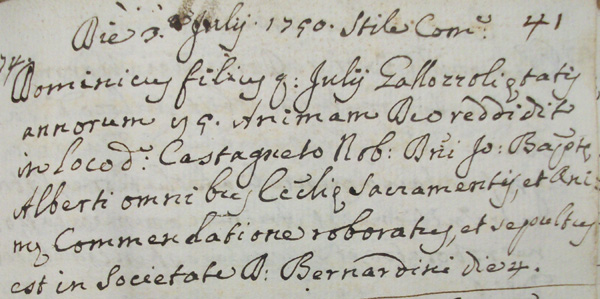 Die 3. July. 1750. Stile Com: 41
74. Dominicus filius q: July Gallozzoli ętatis
annorum 45. Animam Deo reddidit
in loco d: Castagneto Nob: Dni Jo: Baptę
Alberti omnibus Ecclię Sacramentis, et Ani-
mę Commendatione roboratus, et sepultus
est in Societate D: Bernardini die 4.